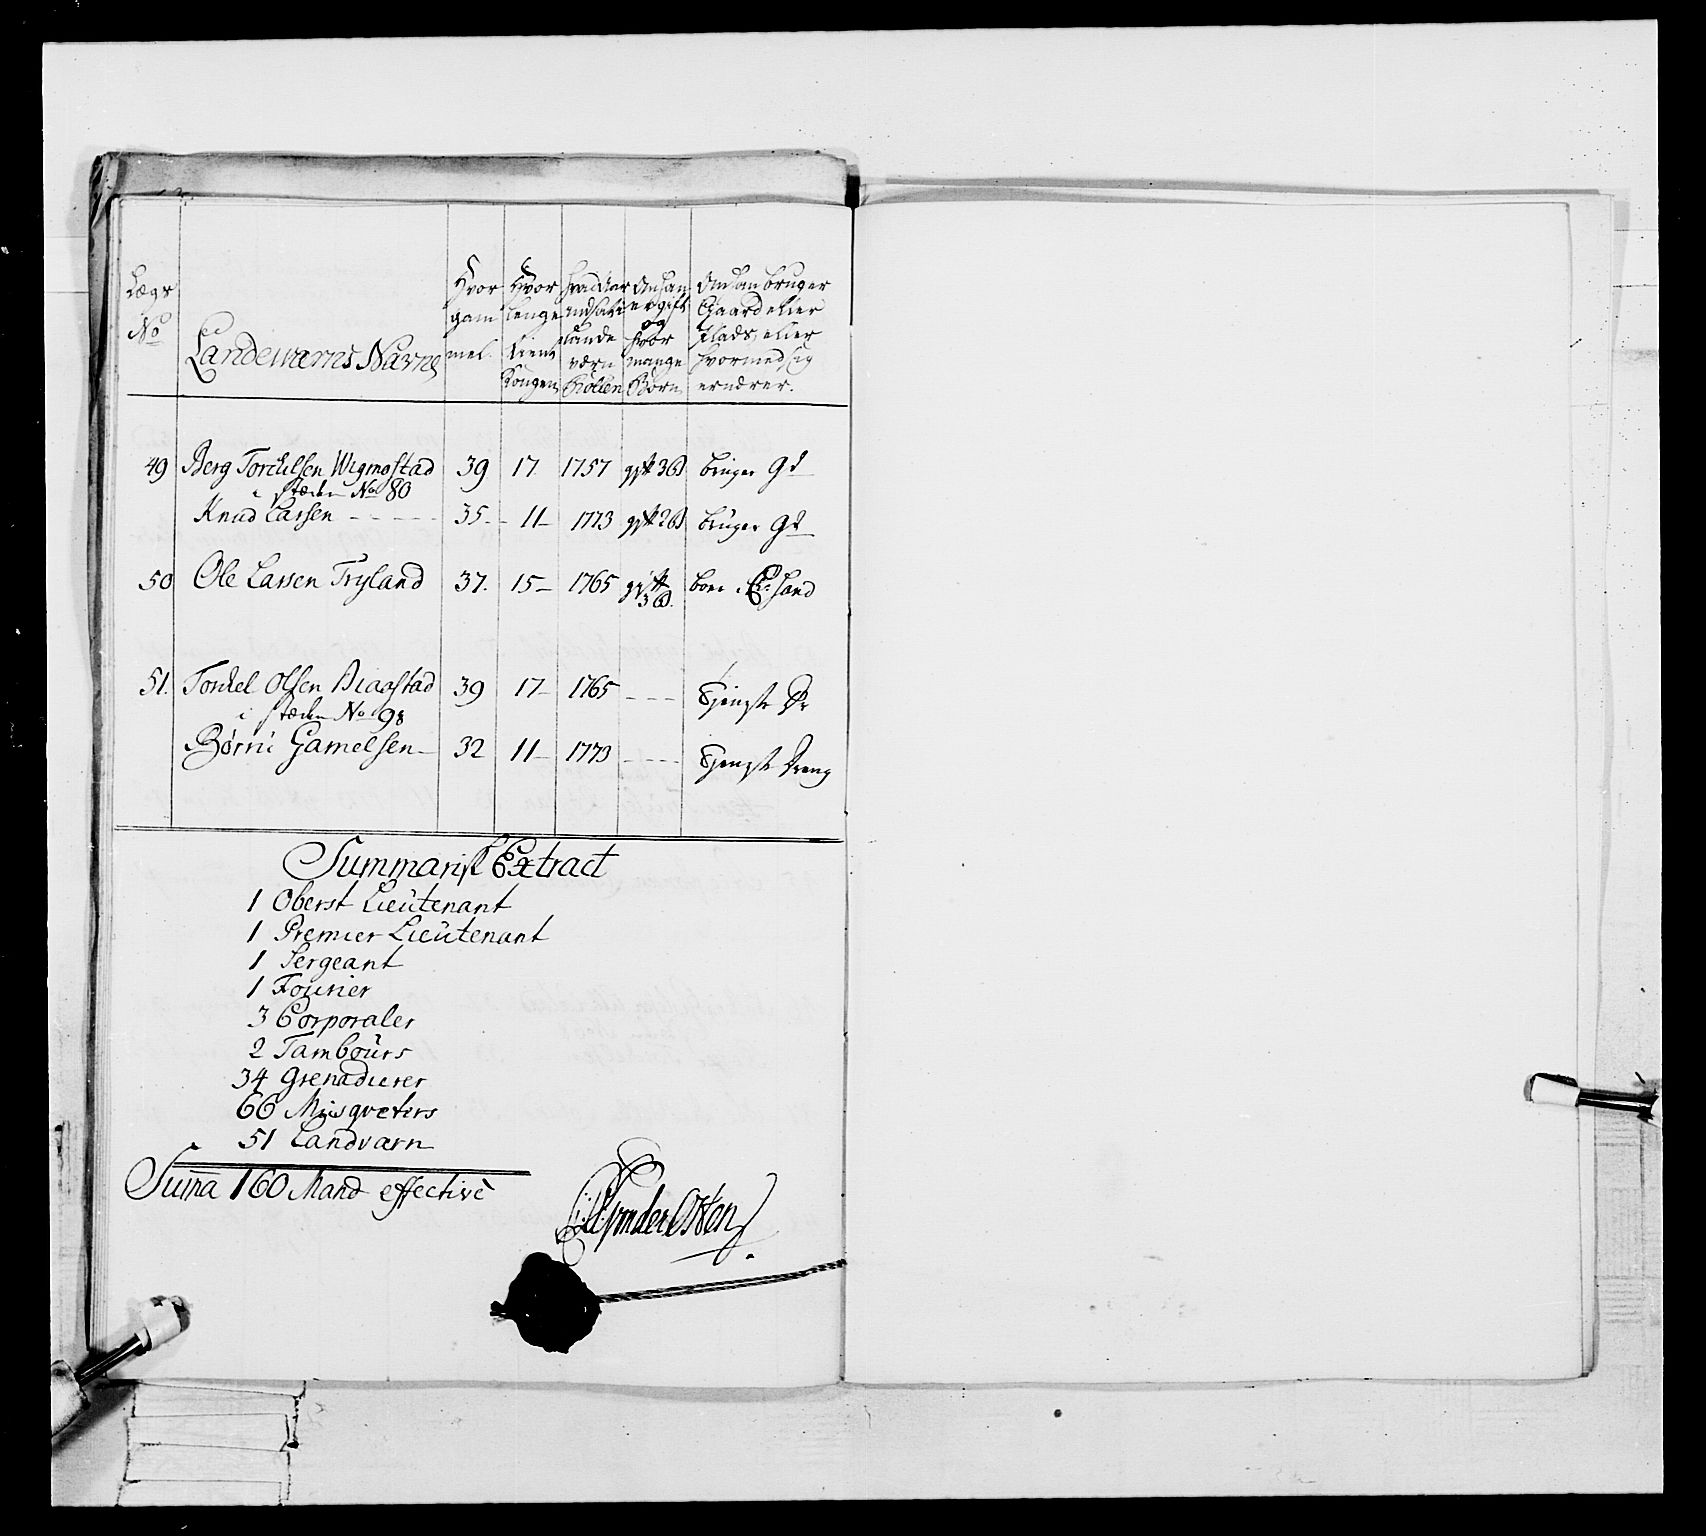 Lægs No
Landeværns Navne
Hvor gam mel.
Hvor lenge tient Kongen
hvad Aar indsat i Lande værn Rollen
Om han er gift og hvor mange Børn
Om han bruger Gaard eller Plads, eller hvormed sig ernærer.
49 Berg Torchilsen Wigmostad 39 17 1757 gift 3 B bruger Gd
i stæden No 80
Knud Larsen - - - - - 35 - 11 - 1773 gift 2 B bruger Gd
50 Ole Larsen Tryland 37. 15 - 1765 gift 3 B. boer i Chr: sand
51. Torckel Olsen 39 17 - 1765 - - - Tjeneste Dr
i stæden No 98
Børni Gamelsen - 32 11 - 1773 - - - - Tjeneste Dreng
Summarisk Extract
1 Oberst Lieutenant
1 Premier Lieutenant
1 Sergeant
1 Fourier
3 Corporaler
2 Tambours
34 Grenadierer
66 Musqveters
51 Landværn
Suma 160 Mand effective
von der Osten